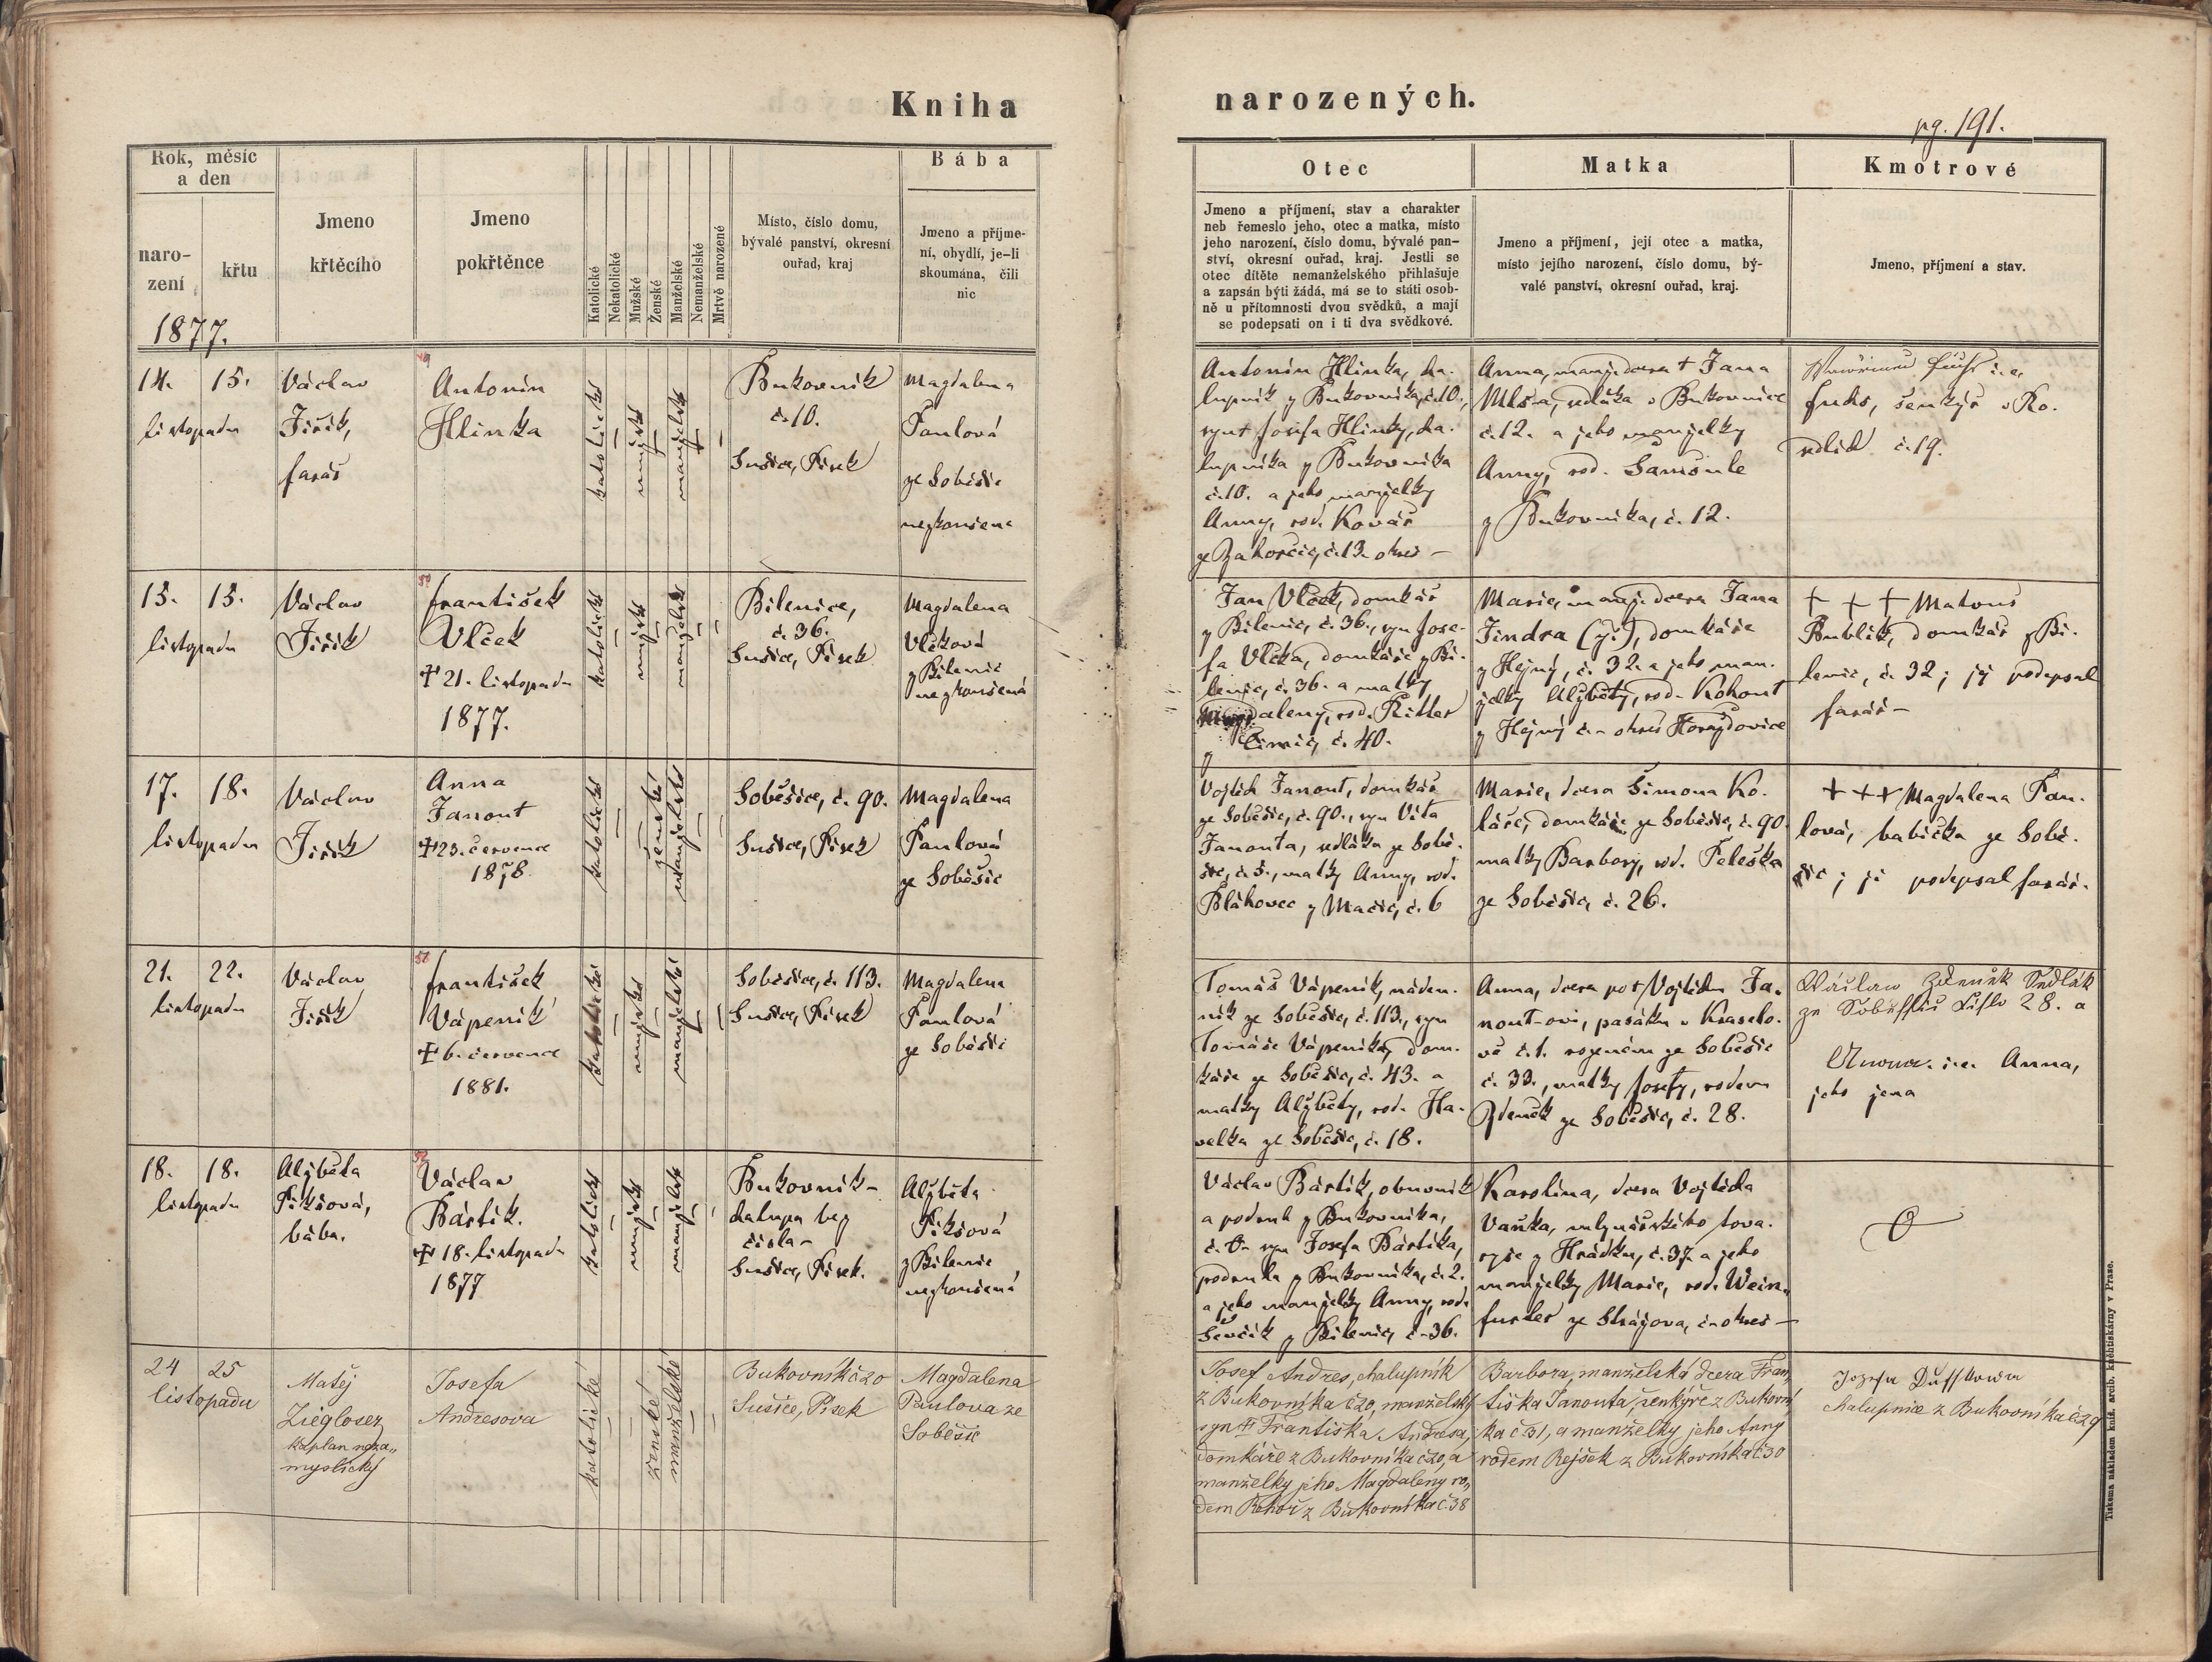 Kniha
narozených.
pg. 191.
Rok, měsíc
a den
naro-
zení
křtu
1877.
Jmeno
křtěcího
Jmeno
pokřtěnce
Katolické
Nekatolické
Mužské
Ženské
Manželské
Nemanželské
Mrtvě narozené
Místo, číslo domu,
bývalé panství, okresní
ouřad, kraj
Bába
Jmeno a příjme-
ní, obydlí, je-li
skoumána, čili
nic
Otec
Jmeno a příjmení, stav a charakter
neb řemeslo jeho, otec a matka, místo
jeho narození, číslo domu, bývalé pan-
ství, okresní ouřad, kraj. Jestli se
otec dítěte nemanželského přihlašuje
a zapsán býti žádá, má se to státi osob-
ně u přítomnosti dvou svědků, a mají
se podepsati on i ti dva svědkové.
Matka
Jmeno a příjmení, její otec a matka,
místo jejího narození, číslo domu, bý-
valé panství, okresní ouřad, kraj.
Kmotrové
Jmeno, příjmení a stav.
14. 15.
listopadu
Václav
Jiřík,
farář
49
Antonín
Hlinka
katolické
mužské
manželské
Bukovník
č. 10.
Sušice, Písek
Magdalena
Paulová
ze Soběšic
nezkoušena
Antonín Hlinka, cha-
lupník z Bukovníka, č. 10.,
syn † Josefa Hlinky, cha-
lupníka z Bukovníka
č. 10. a jeho manželky
Anny, rod. Kovář
ze Zahorčic, č. 13. okres –
Anna, manž. dcera † Jana
sedláka v Bukovníce
č. 12. a jeho manželky
Anny, rod.
z Bukovníka, č. 12.
i. e.
fuks, šenkýř v Ro-
sedlích č. 19.
15. 15.
listopadu
Václav
Jiřík
50
František
Vlček
✝ 21. listopadu
1877.
katolické
mužské
manželské
Bilenice,
č. 36.
Sušice, Písek
Magdalena
Vlčková
z Bilenic
nezkoušená
Jan Vlček, domkář
z Bilenic, č. 36., syn Jose-
fa Vlčka, domkáře z Bi-
lenic, č. 36. a matky
Magdaleny, rod. Ritter
z Čimic, č. 40.
Marie, manž. dcera Jana
Jindra (yi), domkáře
z Hejný, č. 32. a jeho man-
želky Alžběty, rod. Kohout
z Hejný č. – okres Horažďovice
+ + + Matouš
Bublík, domkář z Bi-
lenic, č. 32; jej podepsal
farář –
17. 18.
listopadu
Václav
Jiřík
Anna
Janout
✝ 23. července
1878.
katolické
ženské
manželské
Soběšice, č. 90.
Sušice, Písek
Magdalena
Paulová
ze Soběšic
Vojtěch Janout, domkář
ze Soběšic, č. 90., syn Víta
Janouta, sedláka ze Sobě-
šic, č. 5., matky Anny, rod.
Bláhovec z Mačic, č. 6
Marie, dcera Šimona Ko-
láře, domkáře ze Soběšic, č. 90
matky Barbory, rod. Peleška
ze Soběšic, č. 26.
+ + + Magdalena Pau-
lová, babička ze Sobě-
šic; ji podepsal farář.
21. 22.
listopadu
Václav
Jiřík
51
František
Vápeník
✝ 6. července
1881.
katolické
mužské
manželské
Soběšice, č. 113.
Sušice, Písek
Magdalena
Paulová
ze Soběšic
Tomáš Vápeník, náden-
ník ze Soběšic, č. 113., syn
Tomáše Vápeníka, dom-
káře ze Soběšic, č. 43. a
matky Alžběty, rod. Ha-
velka ze Soběšic, č. 18.
Anna, dcera po † Vojtěchu Ja-
nout-ovi, pasáku v Kraselo-
vě č. 1. rozeném ze Soběšic
č. 33., matky Josefy, rodem
Zdeněk ze Soběšic, č. 28.
Wáclaw Zdeněk Sedlák
28. a
i. e. Anna,
jeho žena
18. 18.
listopadu
Alžběta
Pikšová,
bába.
52
Václav
Bártík.
✝ 18. listopadu
1877
katolické
mužské
manželské
Bukovník –
chalupa bez
čísla –
Sušice, Písek.
Alžběta
Pikšová
z Bilenic
nezkoušená
Václav Bártík, obuvník
a podruh z Bukovníka,
č. 0 – syn Josefa Bártíka,
podruha z Bukovníka, č. 2.
a jeho manželky Anny, rod.
Ševčík z Bilenic, č. 36.
Karolina, dcera Vojtěcha
Vaňka, mlynářského tova-
ryše z Hrádku, č. 37. a jeho
manželky Marie, rod. Wein-
furter ze Strážova, č – okres –
24 25
listopadu
Matěj
Zieglosez
kaplan neza„
myslický
Josefa
Andresova
katolické
ženské
manželské
Bukovník č 20
Sušice, Písek
Magdalena
Paulova ze
Soběšic
Josef Andres, chalupník
z Bukovníka č 20, manželský
syn † Františka Andresa,
domkáře z Bukovníka č 20, a
manželky jeho Magdaleny ro„
dem Řehoř z Bukovníka č 38
Barbora, manželská dcera Fran„
tiška Janouta, šenkýře z Bukovní
ka č 31, a manželky jeho Anny
rodem Rejšek z Bukovníka č 30
Jozefa Duffkowa
chalupnice z Bukovníka č 29
Tiskema nákladem kníž. arcib. knihtiskárny v Praze.